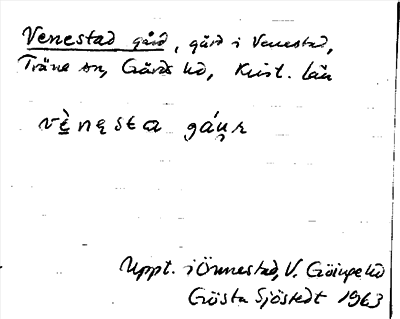 Venestad gård, gård i Venestad,
Träne sn, Gärds hd, Krist. län
vè̱nęsta gáu̯r
Uppt. i Önnestad, V. Göinge hd
Gösta Sjöstedt 1963